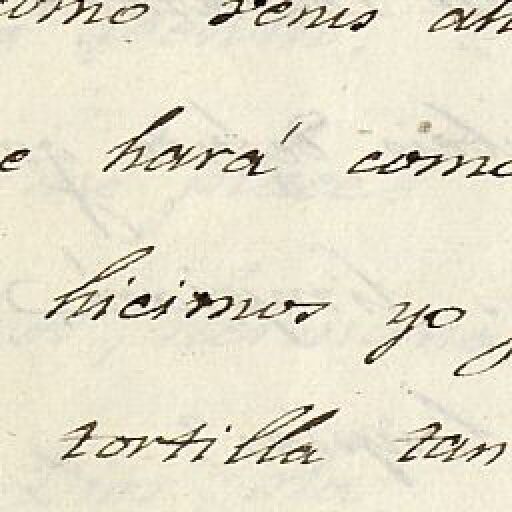 como
e hará como
hicimos yo
tortilla tan